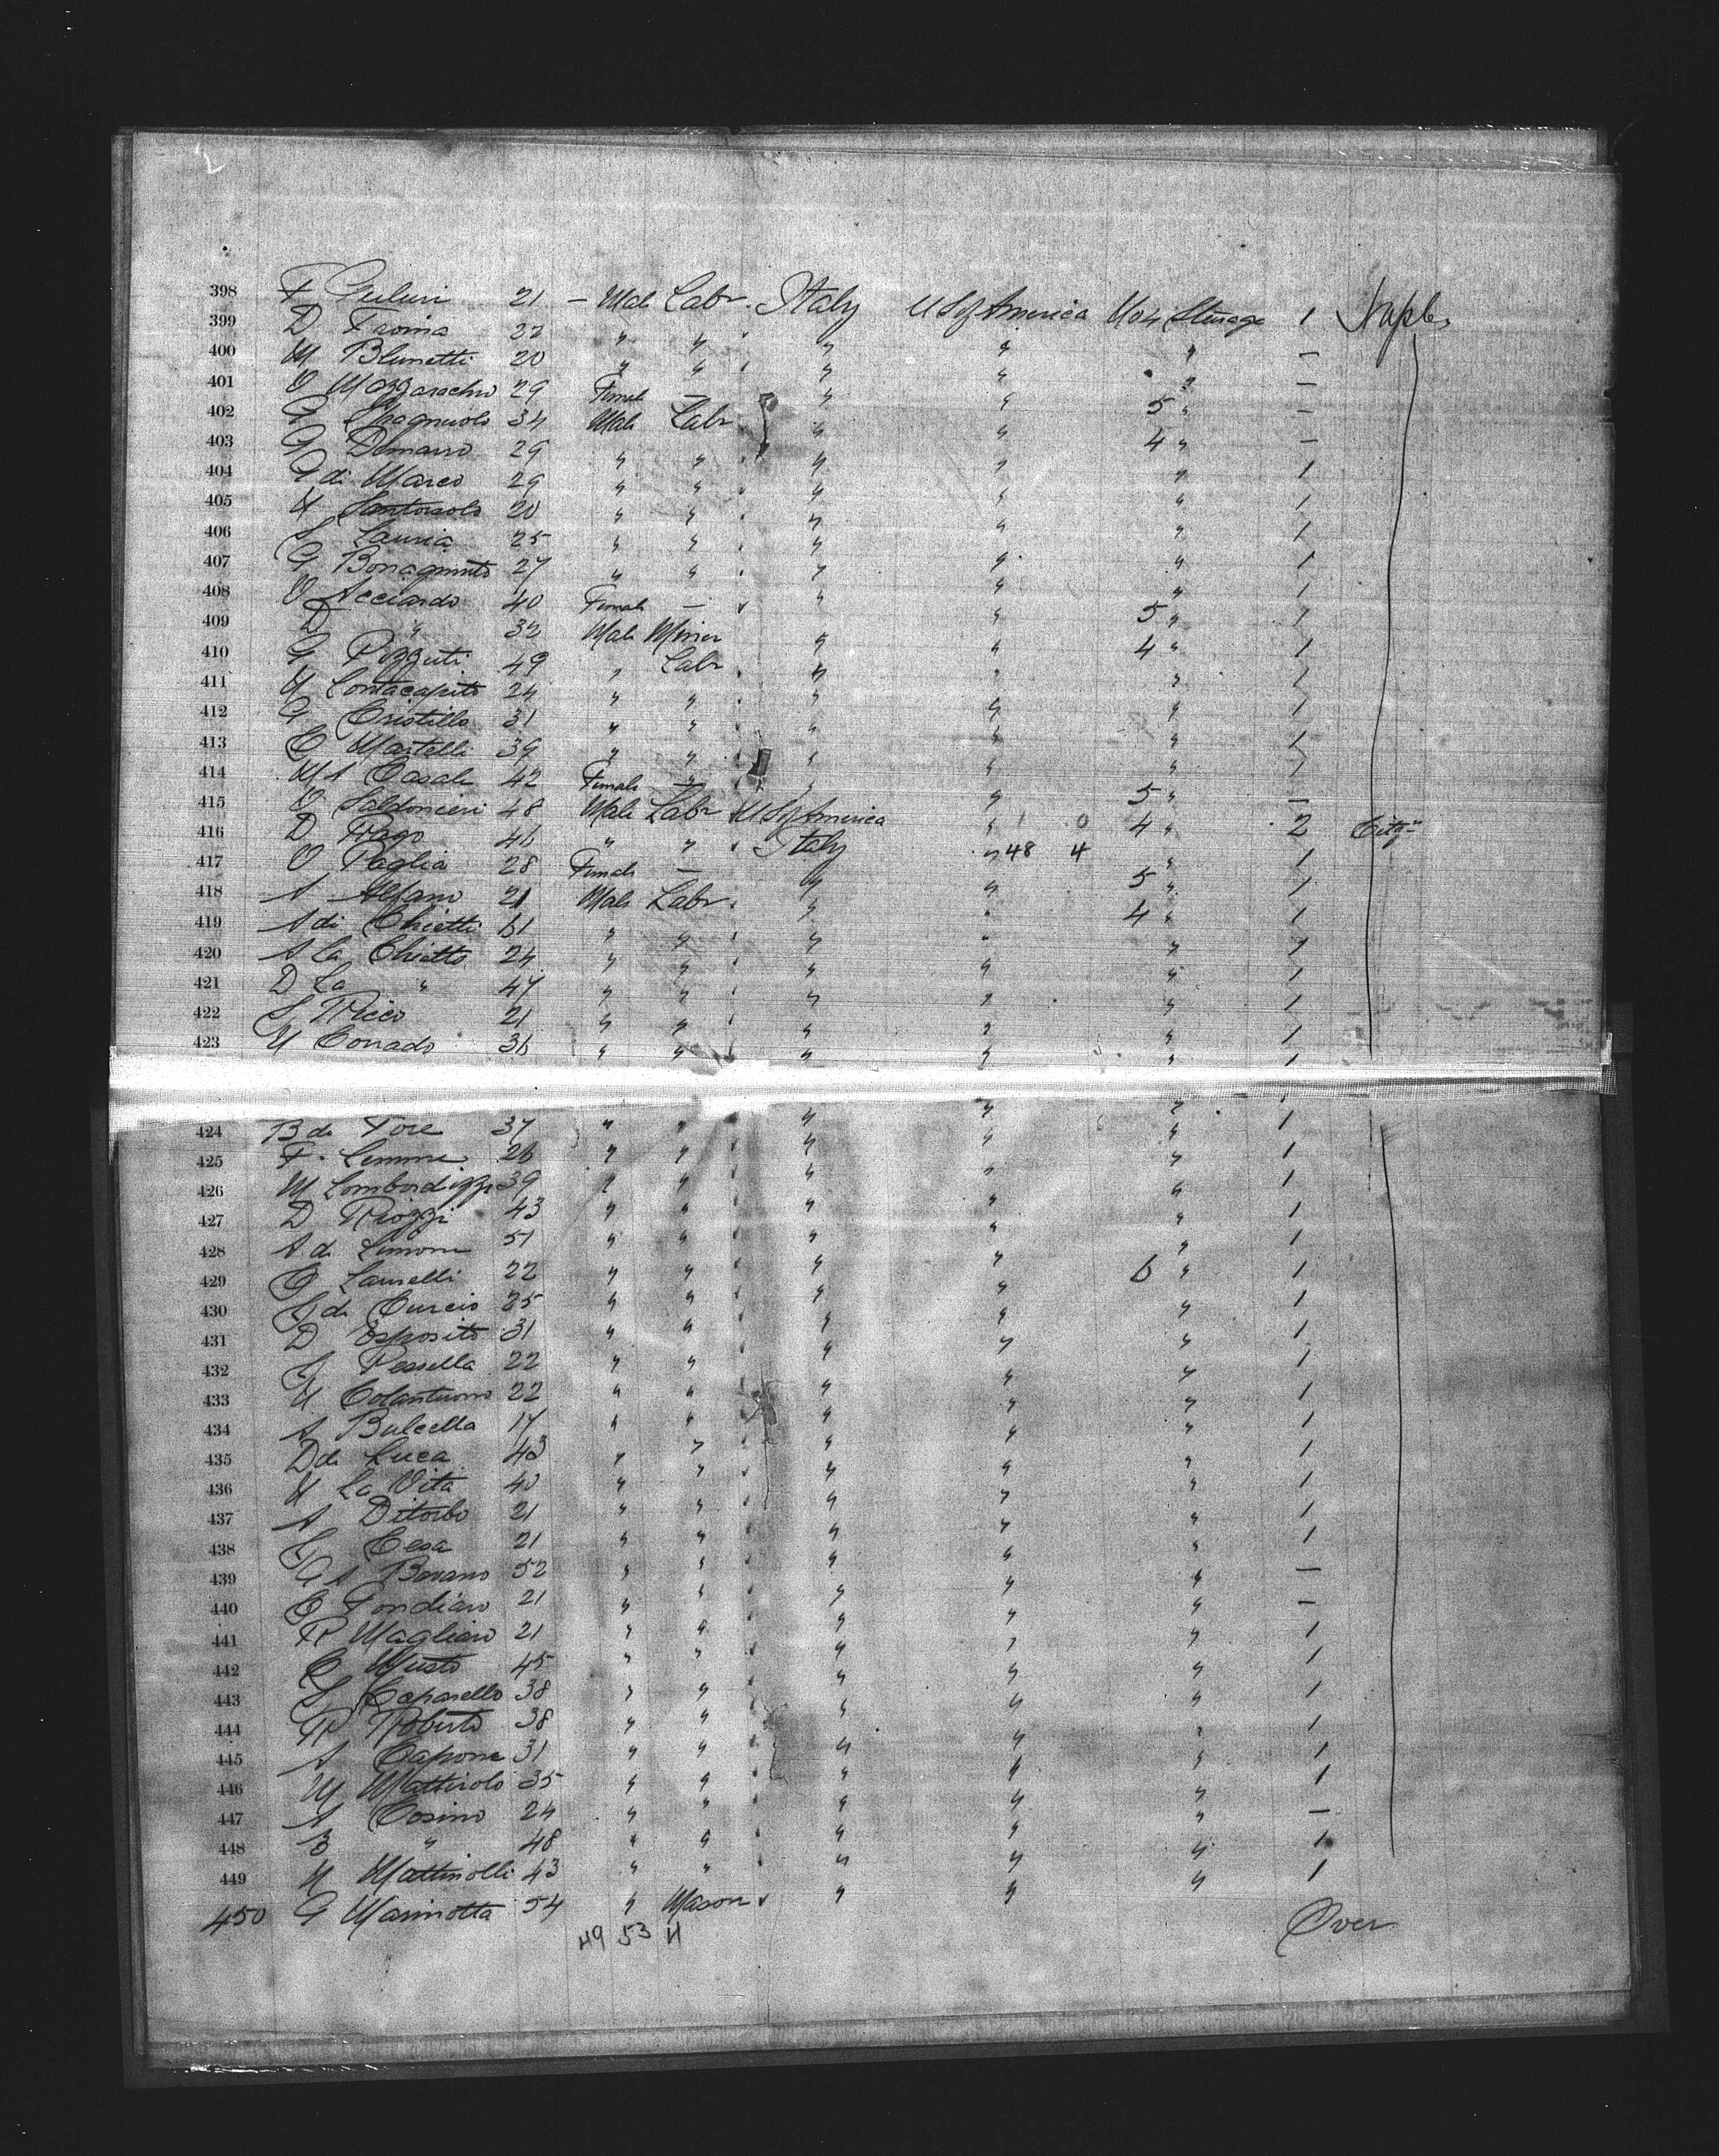 2
398 F 21 — Male Labr. Italy U S of America No 4 Steerage 1 Naples
399 D Froina 22 " " " " "
400 M Blunetti 20 " " " " " —
401 O Mazzarachio 29 Female — " " 5 " —
402 G Spagnuolo 34 Male Labr " " 4 " —
403 G Demarco 29 " " " " " 1
404 G di Marco 29 " " " " " 1
405 N Santorsolo 20 " " " " " 1
406 S Lauria 25 " " " " " 1
407 G Bonagiunto 27 " " " " " 1
408 V Acciardo 40 Female — " " 5 " 1
409 D " 32 Male Miner " " 4 " 1
410 G Pozzuti 49 " Labr " " " 1
411 N Contacapito 24 " " " " " 1
412 G Cristillo 31 " " " " " 1
413 C Martelli 39 " " " " " 1
414 M A Casale 42 Female — " " 5 " —
415 O Saldonieri 48 Male Labr U S of America " 1 0 4 " 2 Citzn
416 D Rago 46 " " Italy " 48 4 " 1
417 V Paglia 28 Female — " " 5 " 1
418 A Alfano 21 Male Labr " " 4 " 1
419 A di Chietti 61 " " " " " 1
420 A La Chiatto 24 " " " " " 1
421 D La " 47 " " " " " 1
422 S Ricco 21 " " " " " 1
423 N Corrado 36 " " " " " 1
424 B di Fore 37 " " " " " 1
425 F. Lemme 26 " " " " " 1
426 M Lombardizzi 39 " " " " " 1
427 D Riozzi 43 " " " " " 1
428 A di Simone 51 " " " " " 1
429 C Laurelli 22 " " " " 6 " 1
430 G di Curcio 25 " " " " " 1
431 D Esposito 31 " " " " " 1
432 G Pessella 22 " " " " " 1
433 N Colantuono 22 " " " " " 1
434 A Bulcella 17 " " " " " 1
435 D di Luca 43 " " " " " 1
436 N La Vita 40 " " " " " 1
437 A Ditorbo 21 " " " " " 1
438 G Cesa 21 " " " " " 1
439 G A Bavaro 52 " " " " " —
440 C Fondiaro 21 " " " " " —
441 R Magliaro 21 " " " " " 1
442 C Musto 45 " " " " " 1
443 S Caparello 38 " " " " " 1
444 R Roberto 38 " " " " " 1
445 A Capone 31 " " " " " 1
446 M Mattirolo 35 " " " " " 1
447 A Cosimo 24 " " " " " —
448 B " 48 " " " " " 1
449 N Mattinolli 43 " " " " " 1
450 G Marinotta 54 " Mason " "
49 53 4 Over